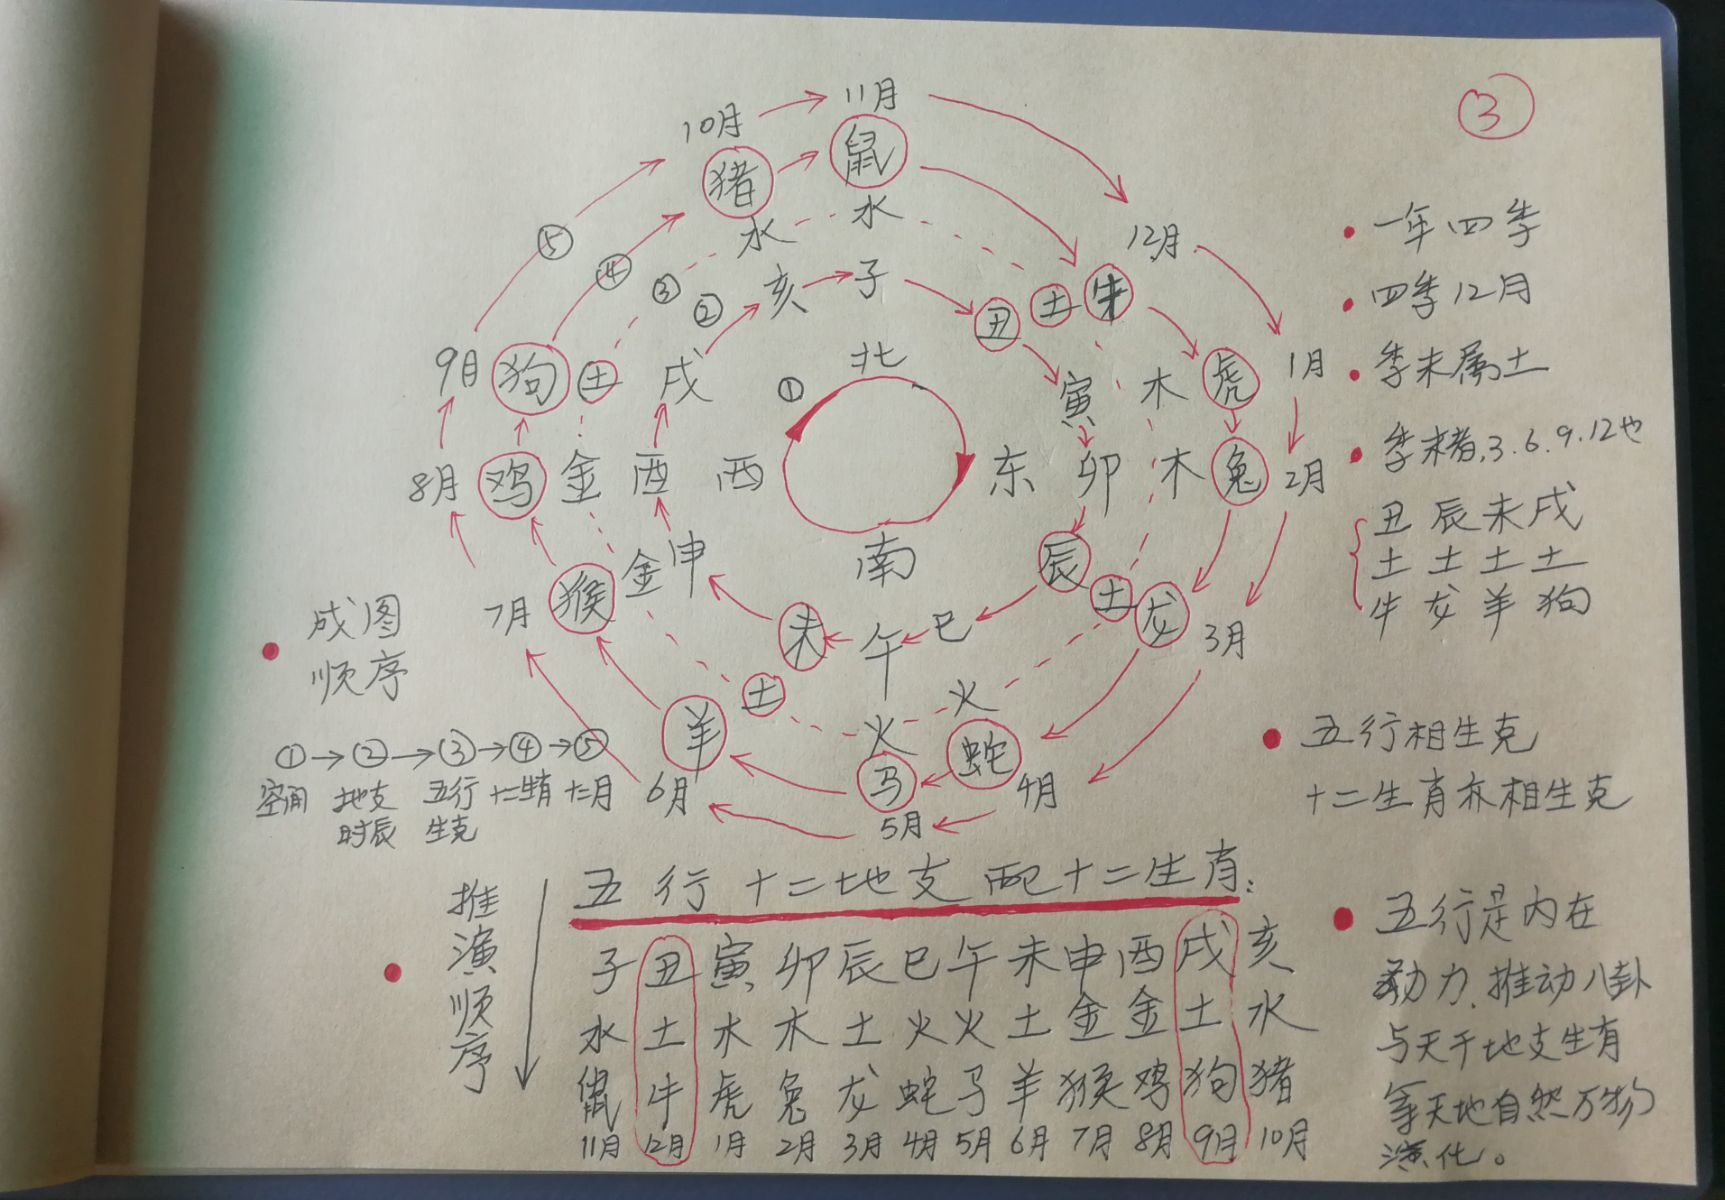 ③
10月 11月
猪 鼠
水 水
12月
⑤ ④ ③ ②
亥 子
丑 土 牛
9月 狗 土 戌
① 北
寅 木 虎 1月
8月 鸡 金 酉 西
东 卯 木 兔 2月
南
7月 猴 金 申
辰 土 龙 3月
未 午 巳
羊 土
火 火
马 蛇
6月 5月 4月
• 一年四季
• 四季12月
• 季末属土
• 季末者,3.6.9.12也
丑 辰 未 戌
土 土 土 土
牛 龙 羊 狗
• 成图
顺序
①→②→③→④→⑤
空间 地支 五行 十二生肖 十二月
时辰 生克
• 五行相生克
十二生肖亦相生克
• 推演顺序
五行十二地支配十二生肖:
子 丑 寅 卯 辰 巳 午 未 申 酉 戌 亥
水 土 木 木 土 火 火 土 金 金 土 水
鼠 牛 虎 兔 龙 蛇 马 羊 猴 鸡 狗 猪
11月 12月 1月 2月 3月 4月 5月 6月 7月 8月 9月 10月
• 五行是内在
动力,推动八卦
与天干地支生肖
等天地自然万物
演化。